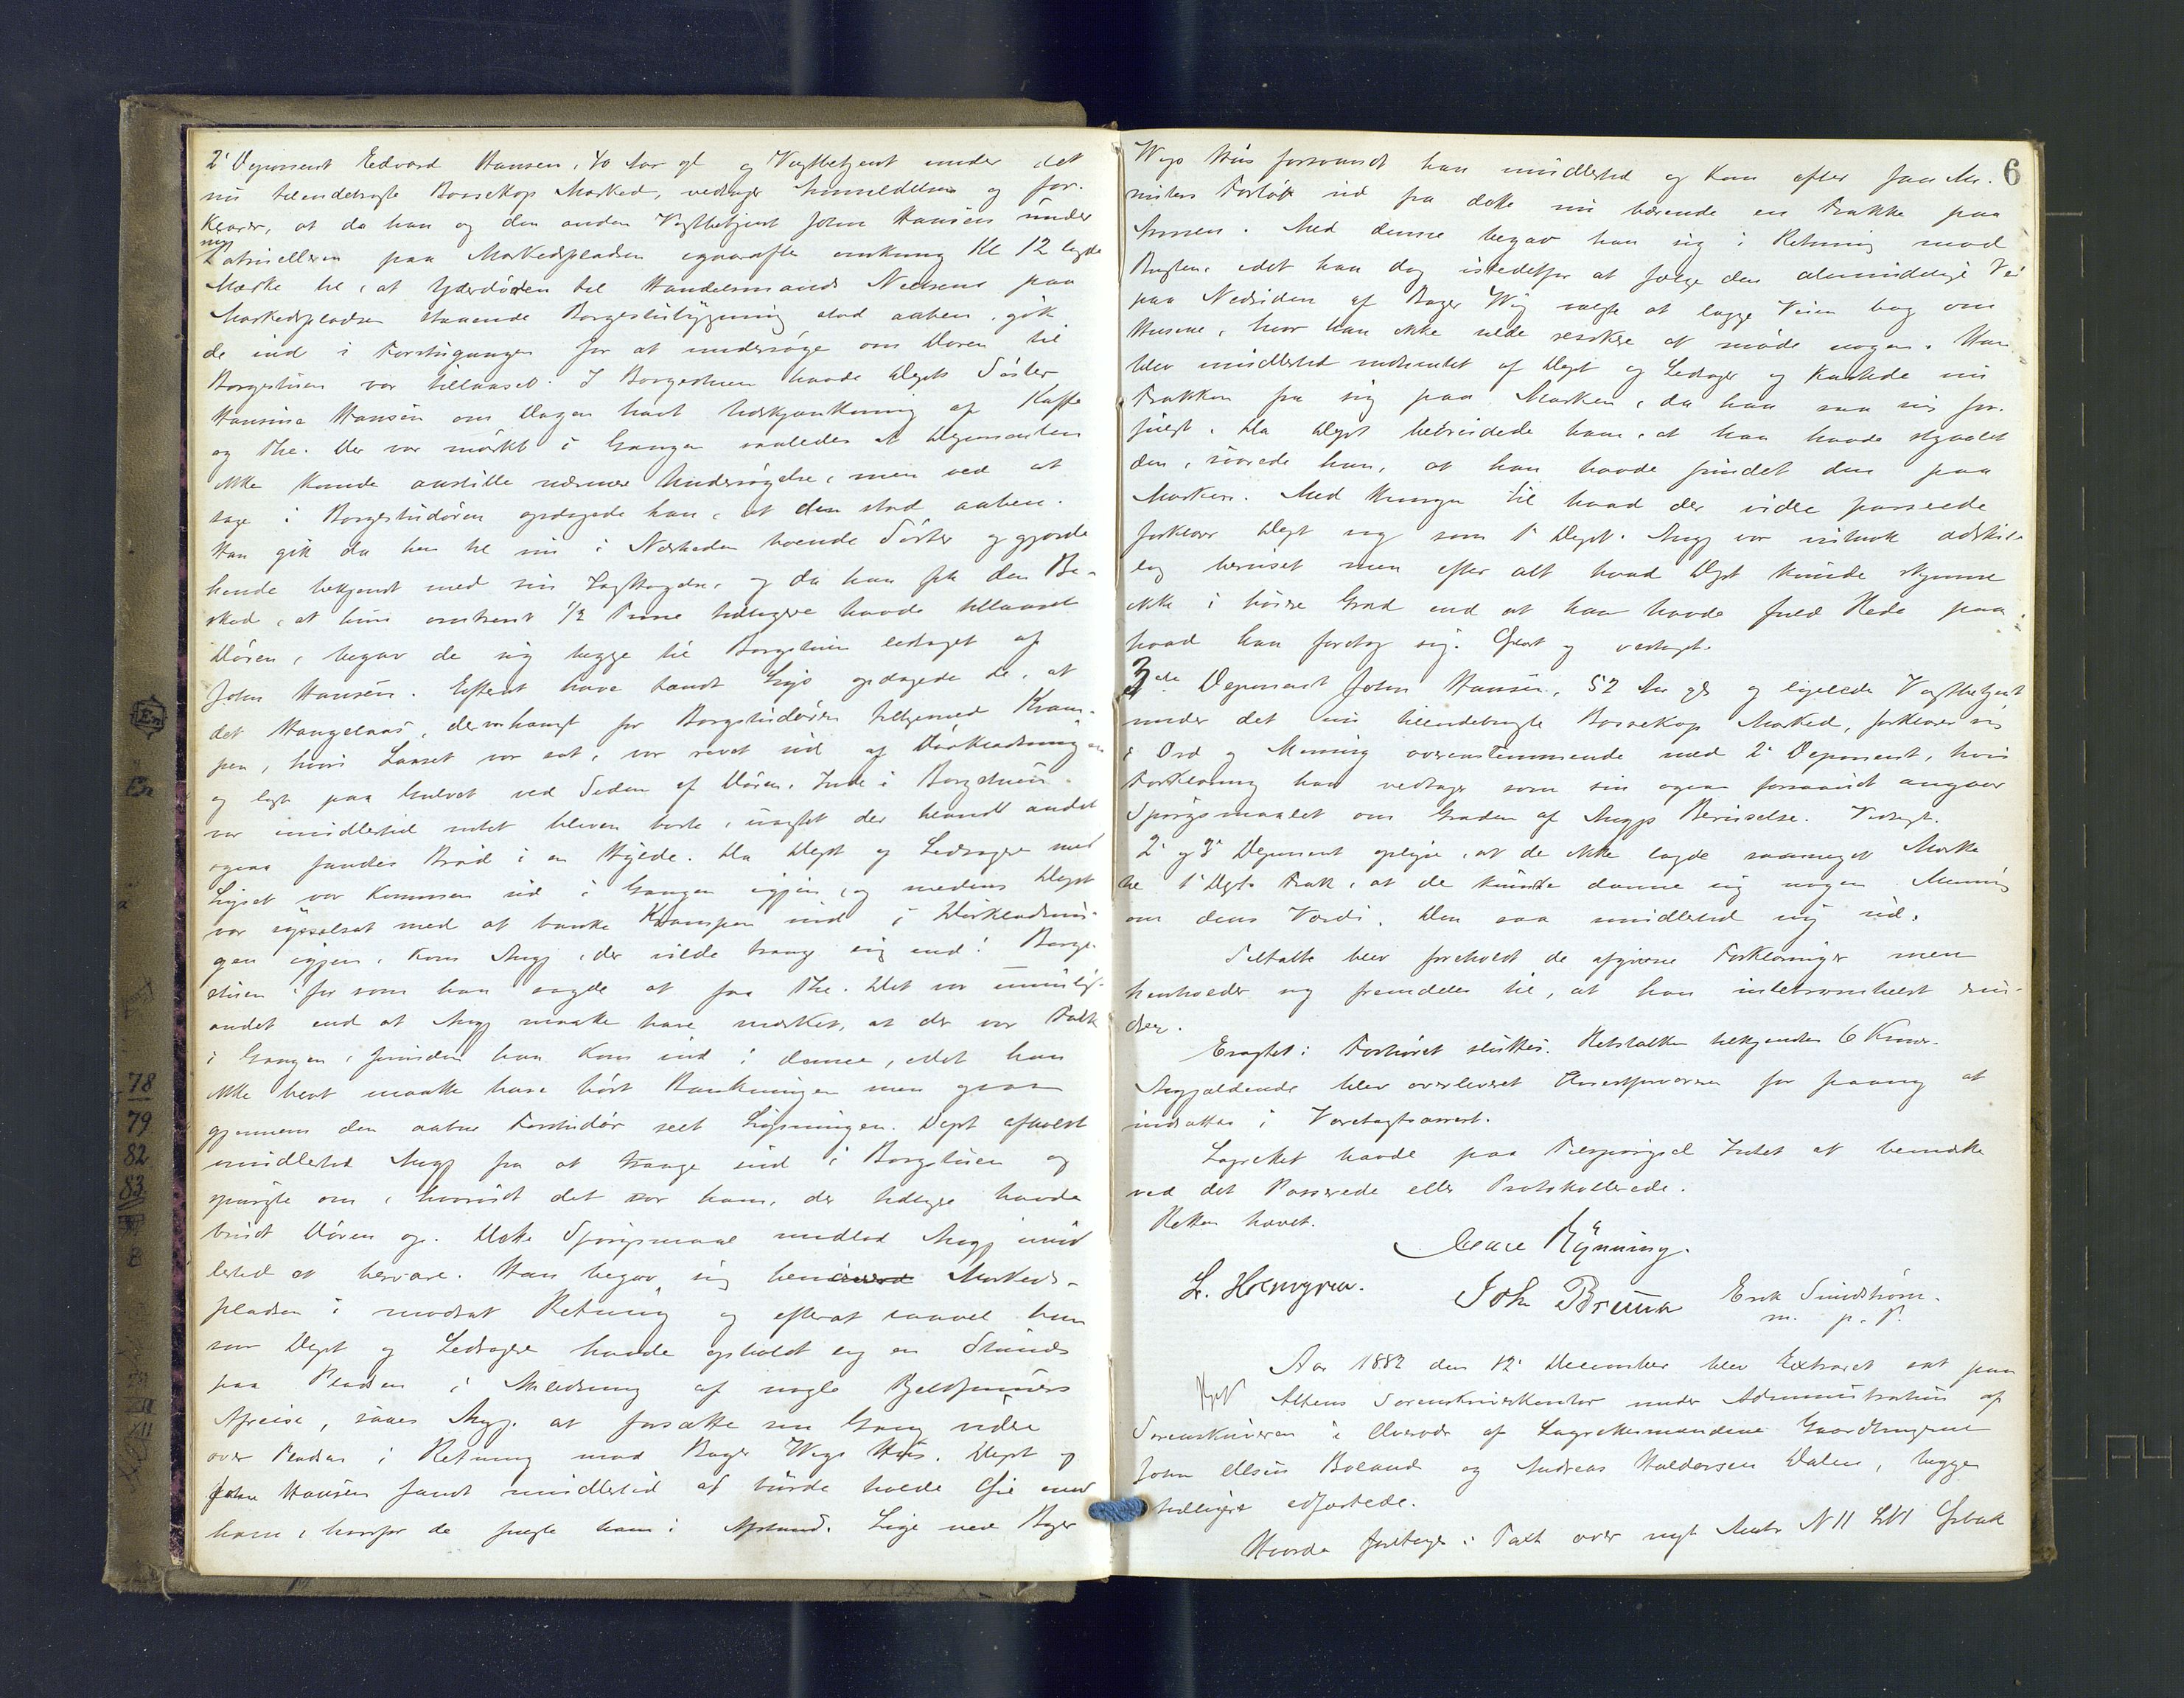 2' Deponent Edvard Hansen, 40 Aar gl og Vagtbetjent under det
nu tilendebragte Bossekop Marked, vedtager Anmeldelsen og for-
klarer, at da han og den anden Vagtbetjent John Hansen under
Patruilleren paa Markedspladsen igaaraftes omkring Kl 12 lagde
Mærke til, at Yderdøren til Handelsmand Nielsens paa
Markedspladsen staaende Borgestubygning stod aaben, gik
de ind i Forstugangen for at undersøge om Døren til
Borgestuen var tillaaset. I Borgestuen havde Depts Søster
Hansine Hansen om Dagen havt Udskjænkning af Kaffe
og The. Der var mørkt i Gangen saaledes at Deponenten
ikke kunde anstille nærmere Undersøgelse, men ved at
tage i Borgestudøren opdagede han, at den stod aaben.
Han gik da hen til sin i Nærheden boende Søster og gjorde
hende bekjendt med sin Iagttagelse, og da han fik den Be-
sked, at hun omtrent ½ Time tidligere havde tillaaset
Døren, begav de sig begge til Borgestuen ledsaget af
John Hansen. Efterat have tændt Lys opdagede de, at
det Hængelaas, der var hængt for Borgestudøren tilligemed Kram-
pen, hvori Laaset var sat, var revet ud af Dørklædningen
og laa paa Gulvet ved Siden af Døren. Inde i Borgestuen
var imidlertid intet bleven borte, uagtet der blandt andet
ogsaa fandtes Brød i en Hylde. Da Dept og Ledsagere med
Lyset var kommen ud i Gangen igjen, og medens Dept
var sysselsat med at banke Krampen ind i Dørklædnin-
gen igjen, kom Angj, der vilde trænge sig ind i Borge-
stuen for som han sagde at faa The. Det var umulig
andet end at Angj maatte have mærket, at der var Folk
i Gangen, førinden han kom ind i denne, idet han
ikke blot maatte have hørt Bankningen men ogsaa
gjennem den aabne Forstudør seet Lysningen. Dept afholdt
imidlertid Angj fra at trænge ind i Borgstuen og
spurgte om, hvorvidt det var ham, der tidligere havde
brudt Døren op. Dette Spørgsmaal undlod Angj imid
lertid at besvare. Han begav sig hen Markeds-
pladsen i modsat Retning og efterat saavel han
som Dept og Ledsagere havde opholdt sig en Stund
paa Pladsen i Anledning af nogle Fjeldfinners
Afreise, saaes Angj. at forsætte sin Gang videre
over Pladsen i Retning mod Bager Wigs Hus. Dept og
John Hansen fandt imidlertid at burde holde Øie med
ham, hvorfor de fulgte ham i Afstand. Lige ved Bager
6
Wigs Hus forsvandt han imidlertid og kom efter faa Mi-
nuters Forløb ud fra dette nu bærende en Frakke paa
Armen. Med denne begav han sig i Retning mod
Bugten, idet han dog istedetfor at følge den almindelige Vei
paa Nedsiden af Bager Wig valgte at lægge Veien bag om
Husene, hvor han ikke vilde resikere at møde nogen. Han
blev imidlertid indhentet af Dept og Ledsager og kastede nu
Frakken fra sig paa Marken, da han saa sig for-
fulgt. Da Dept bebreidede ham, at han havde stjaalet
den, svarede han, at han havde fundet den paa
Marken. Med Hensyn til hvad der videre passerede
forklarer Dept sig som 1' Dept. Angj var vistnok adskil-
lig beruset men efter alt hvad Dept kunde skjønne
ikke i høiere Grad end at han havde fuld Rede paa
hvad han foretog sig. Oplæst og vedtaget.
3die Deponent John Hansen, 52 Aar gl og ligeledes Vagtbetjent
under det nu tilendebragte Bossekop Marked, forklarer sig
i Ord og Mening overensstemmende med 2' Deponent, hvis
Forklaring han vedtager som sin ogsaa forsaavidt angaar
Spørgsmaalet om Graden af Angjs Beruselse. Vedtaget.
2' og 3' Deponent oplyse, at de ikke lagde saameget Mærke
til 1' Depts Frak, at de kunde danne sig nogen Mening
om dens Værdi. Den saa imidlertid ny ud.
Tiltalte blev foreholdt de afgivne Forklaringer men
henholder sig fremdeles til, at han intetsomhelst erin-
drer.
Eragtet: Forhøret sluttes. Retstolken tilkjendes 6 Kroner.
Angjældende blev overleveret Arrestforvareren for paany at
indsættes i Varetægtsarrest.
Lagrettet havde paa Tilspørgsel Intet at bemærke
ved det Passerede eller Protokollerede.
Retten hævet.
Rynning.
Joh Bruun
Erik Sundstrøm.
m. p. P.
Aar 1882 den 12' December blev Extraret sat paa
Altens Sorenskriverkontor under Administration af
Sorenskriveren i Overvær af Lagrettemændene Gaardbrugerne
John Olsen Boland og Andreas Haldorsen Dalen, begge
tidligere edfæstede.
Hvorda foretoges: